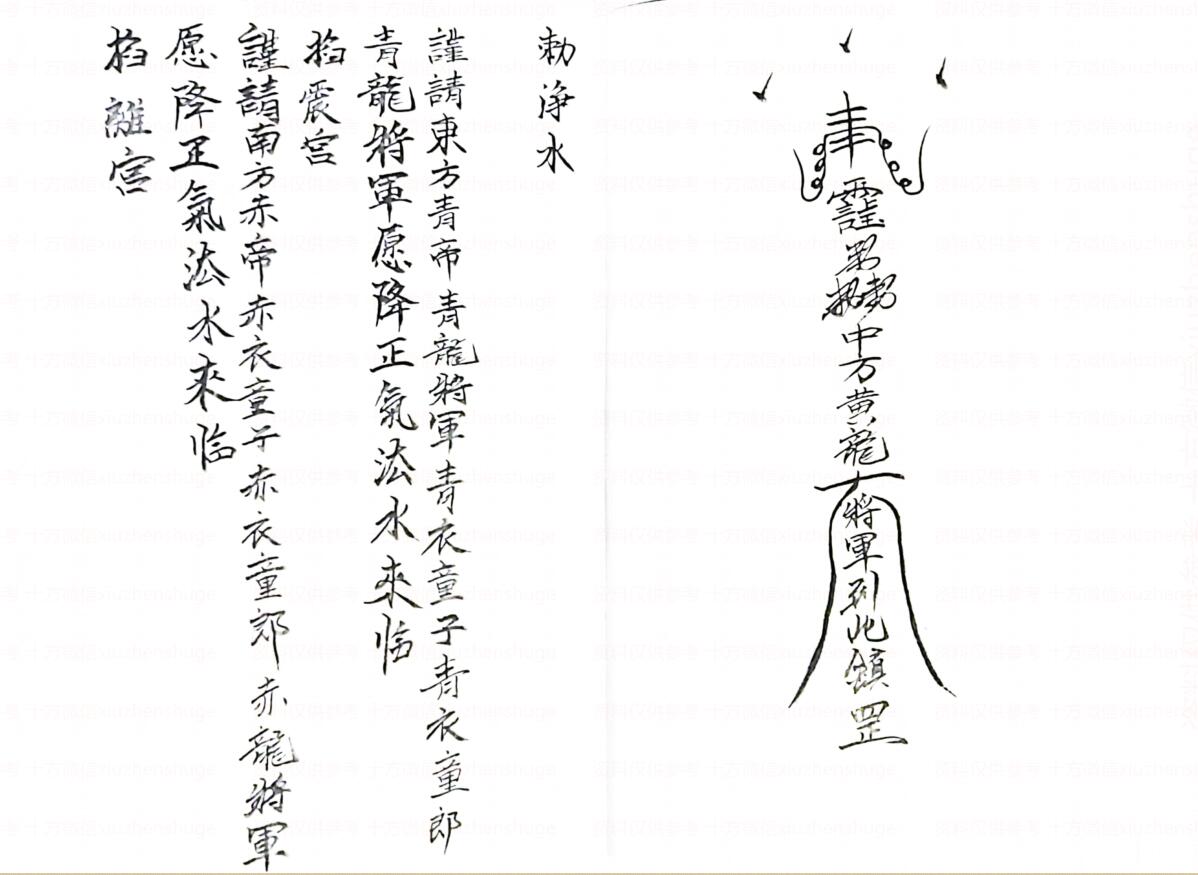 中方黄龍
將軍到此鎮罡
勅淨水
謹請東方青帝青龍將軍青衣童子青衣童郎
青龍将軍愿降正氣法水來临
掐震宫
謹請南方赤帝赤衣童子赤衣童郎赤龍將軍
愿降正氣法水来临
掐離宫
资料仅供参考 十方微信xiuzhenshuge